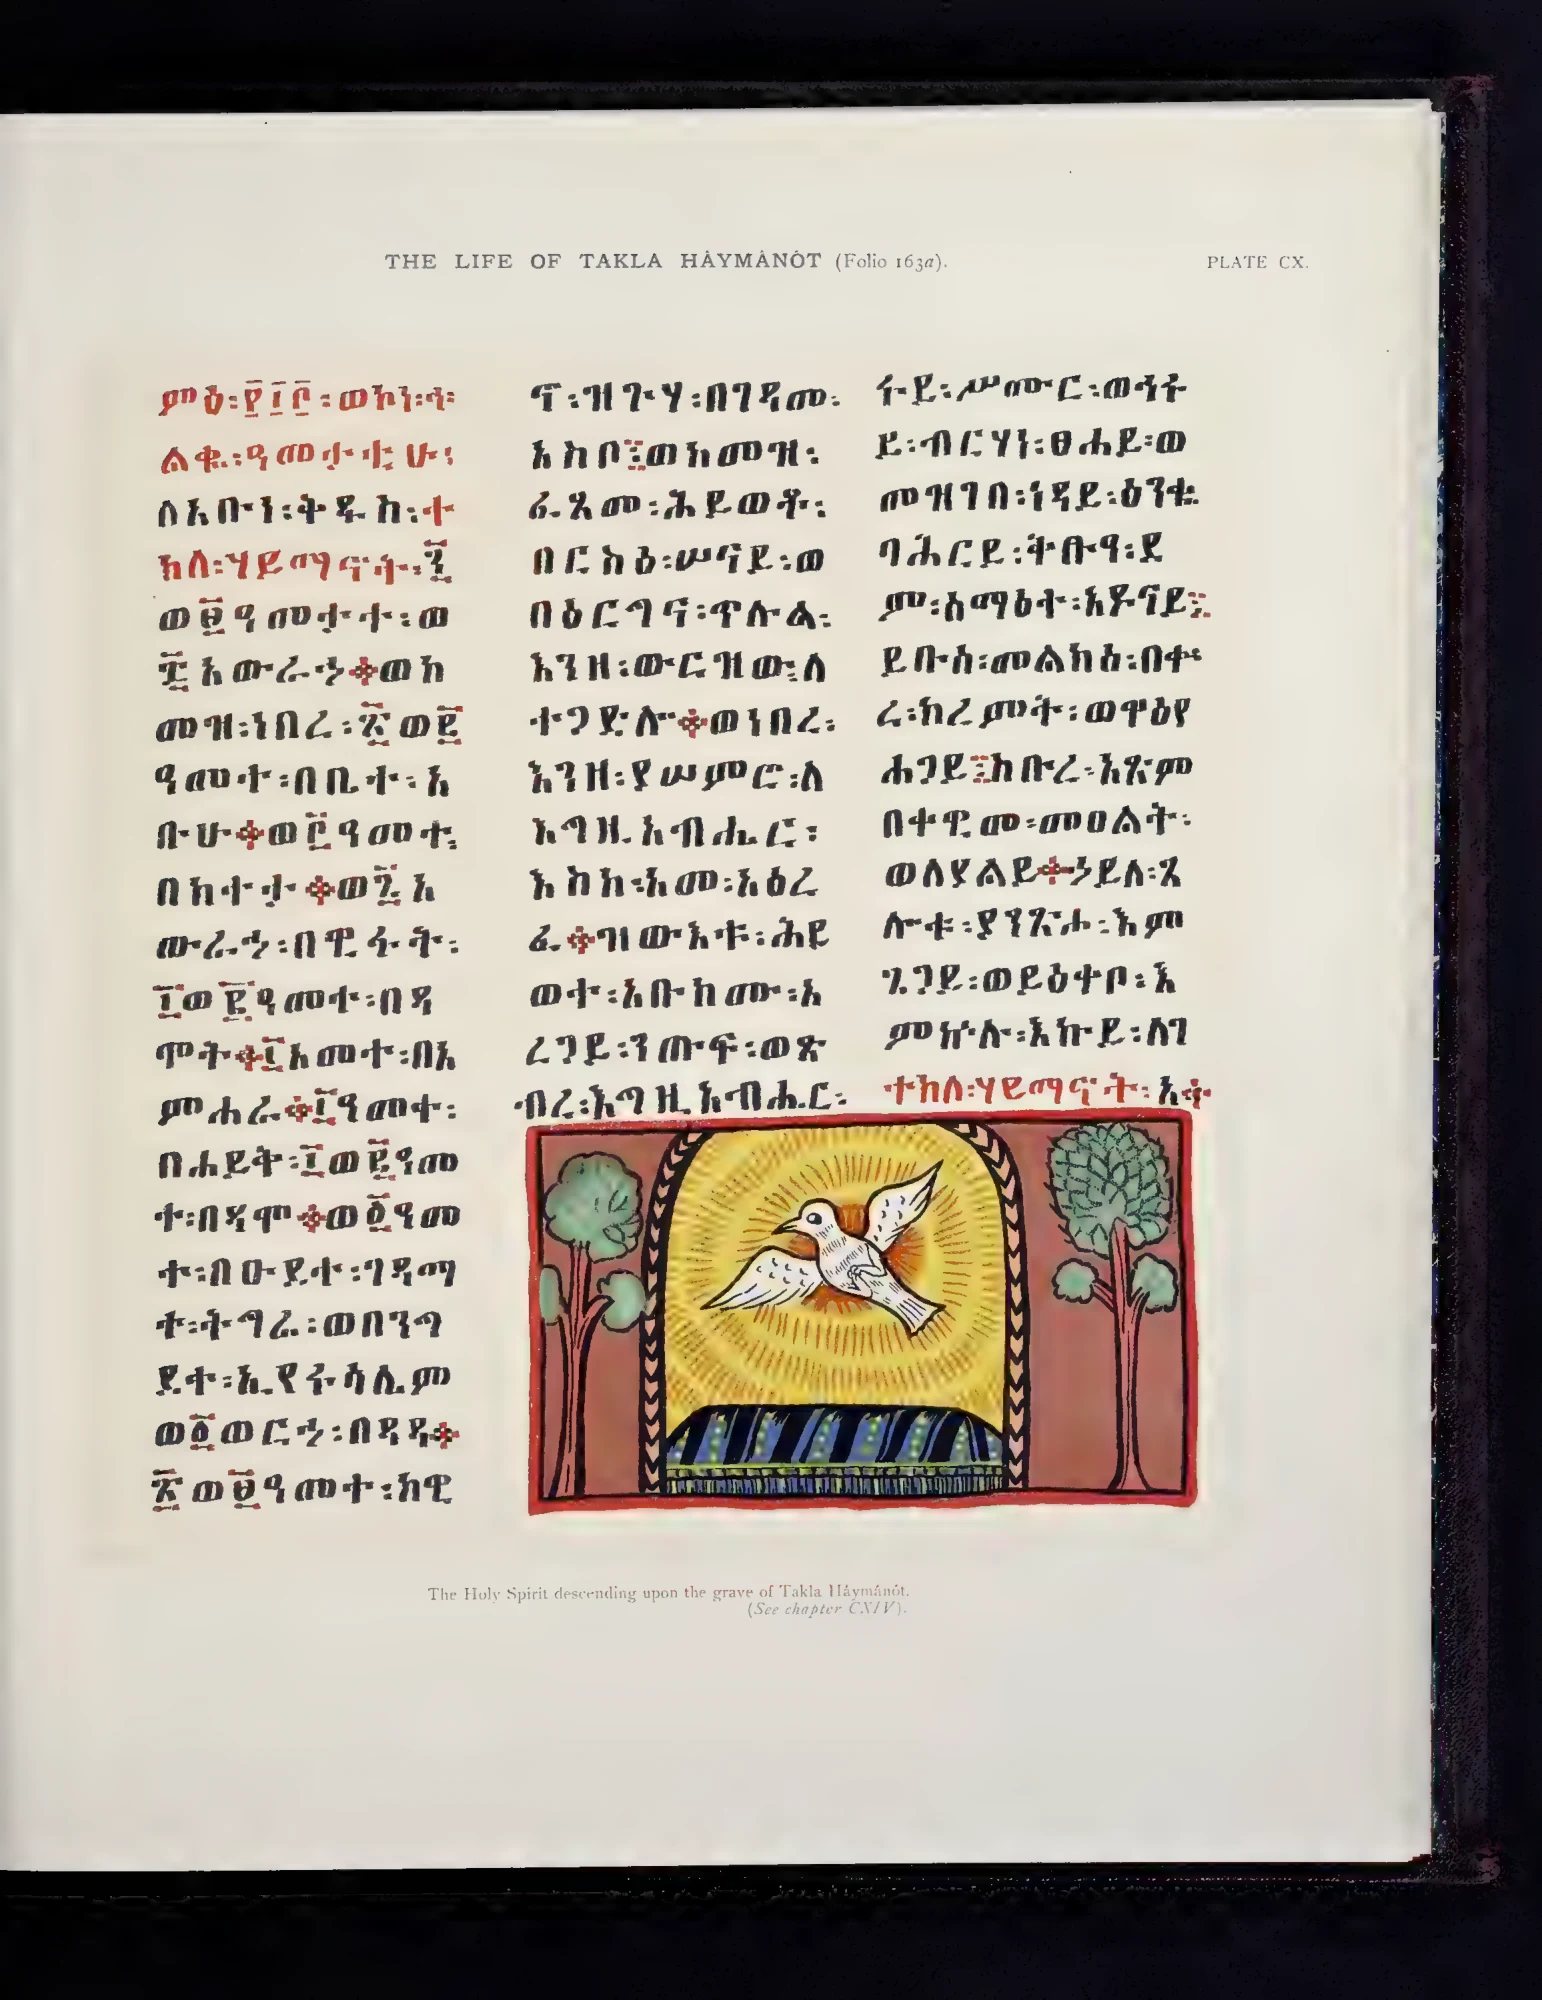 THE LIFE OF TAKLA HÂYMÂNÔT (Folio 163a).
PLATE CX.
ምዕ፡፻፲፬፡ወኮነ፡ኍ፡
ልቁ፡ዓመታቲሁ፡
ለአቡነ፡ቅዱስ፡ተ
ክለ፡ሃይማኖት፡፺
ወ፱ዓመታት፡ወ
፲አውራኅ፨ወከ
መዝ፡ነበረ፡፳ወ፪
ዓመተ፡በቤተ፡አ
ቡሁ፨ወ፫ዓመተ፡
በክተታ፨ወ፯አ
ውራኅ፡በዊፋት፡
፲ወ፪ዓመተ፡በዳ
ሞት፨፲አመተ፡በአ
ምሐራ፨፲ዓመተ፡
በሐይቅ፡፲ወ፪ዓመ
ተ፡በዳሞ፨ወ፩ዓመ
ተ፡በውደተ፡ገዳማ
ተ፡ትግሬ፡ወበንግ
ደተ፡ኢየሩሳሌም
ወ፩ወርኅ፡በዳዳ፨
፳ወ፱ዓመተ፡ክዊ
ኖ፡ዝጉሃ፡በገዳመ፡
አስቦ፤ወከመዝ፡
ፈጸመ፡ሕይወቶ፡
በርስዕ፡ሠናይ፡ወ
በዕርግና፡ጥሉል፡
እንዘ፡ውርዝው፡ለ
ተጋድሎ፨ወነበረ፡
እንዘ፡ያሠምሮ፡ለ
እግዚአብሔር፡
እስከ፡አመ፡አዕረ
ፈ፨ዝውእቱ፡ሕይ
ወተ፡አቡክሙ፡አ
ረጋይ፡ንጡፍ፡ወጽ
ብረ፡እግዚአብሔር፡
ሩይ፡ሥሙር፡ወኅሩ
ይ፡ብርሃነ፡ፀሐይ፡ወ
መዝገበ፡ነዳይ፡ዕንቁ
ባሕርይ፡ትቡዓ፡ደ
ም፡ሰማዕት፡አዶናይ፤
ይቡስ፡መልክዕ፡በቍ
ረ፡ክረምት፡ወዋዕየ
ሐጋይ፤ከቡረ፡እጽም
በቀዊመ፡መዐልት፡
ወለያልይ፨ኃይለ፡ጸ
ሎቱ፡ያንጽሖ፡እም
ጌጋይ፡ወይዕቀቦ፡እ
ምኵሉ፡እኩይ፡ለገ
ተክለ፡ሃይማኖት፡አ፨
The Holy Spirit descending upon the grave of Takla Hâymânôt.
(See chapter CXIV).